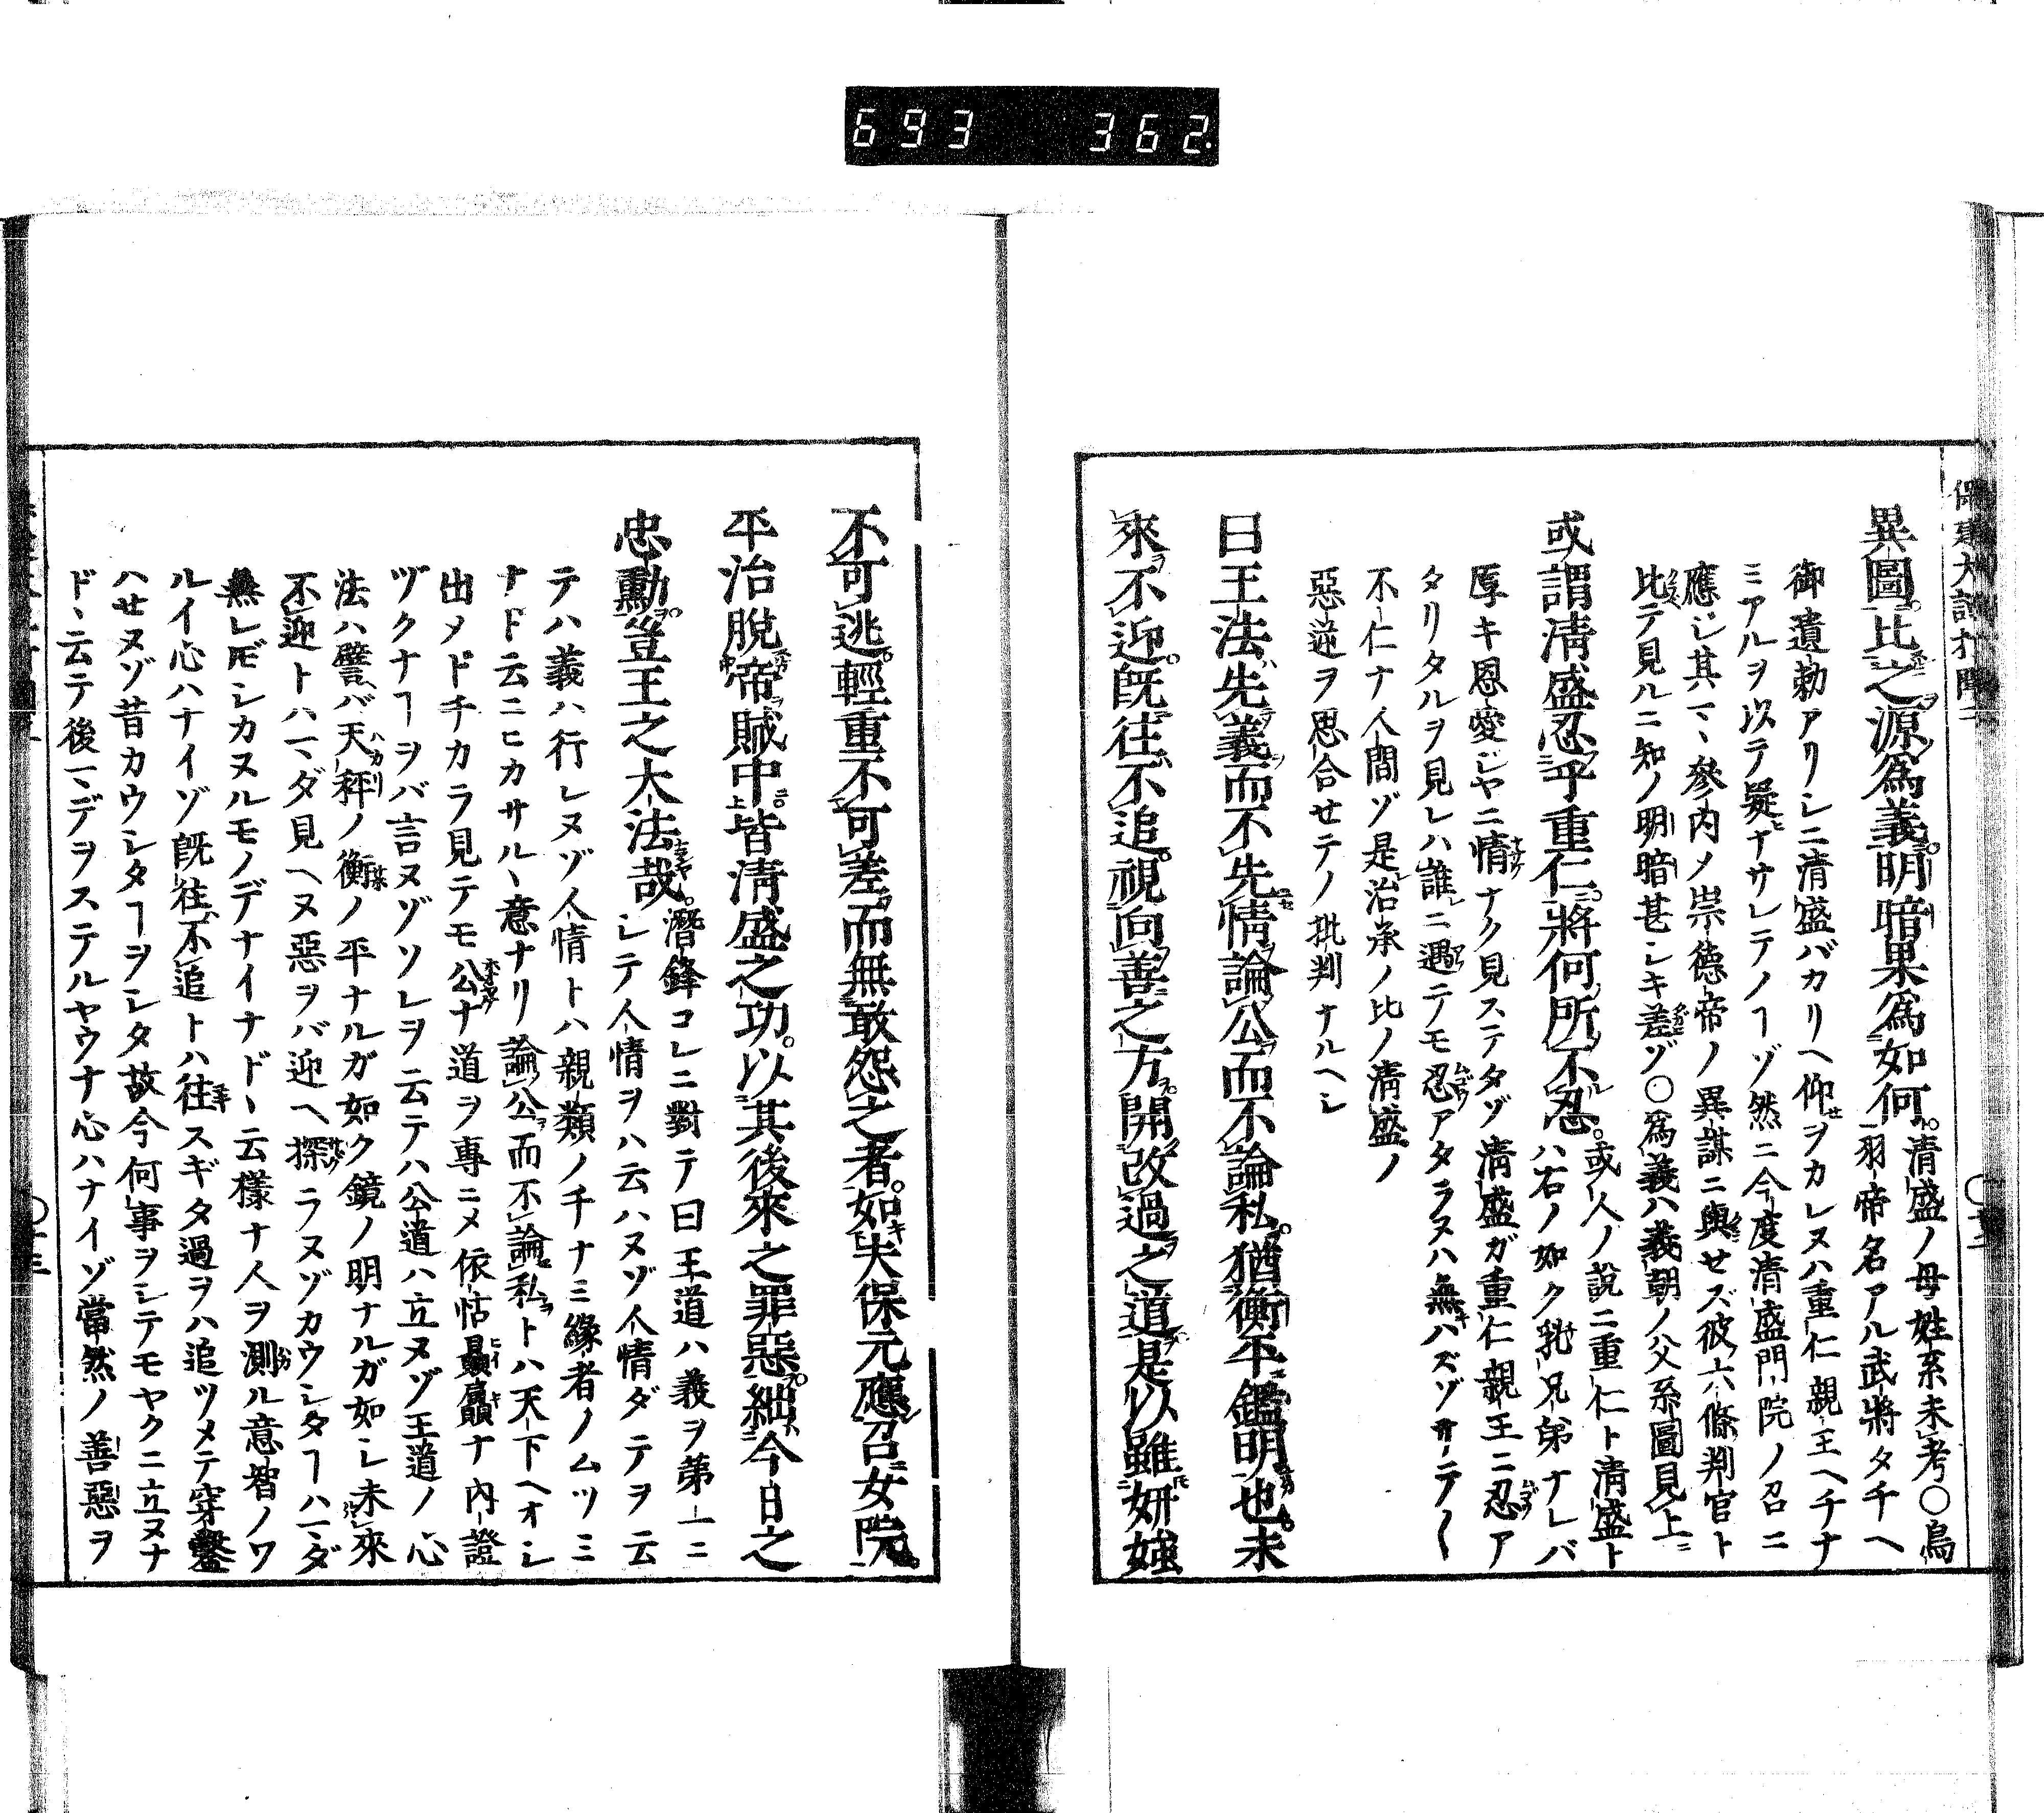 693 362
保建大記打聞二
異圖。比之源爲義。明暗果爲如何。清盛ノ母姓系未考○鳥
羽帝名アル武將タチヘ
御遺勅アリシニ清盛バカリヘ仰ヲカレヌハ重仁親王ヘチナ
ミアルヲ以テ疑ナサレテノヿゾ然ニ今度清盛門院ノ召ニ
應ジ其マヽ參内メ崇德帝ノ異謀ニ與セズ彼六條判官ト
比テ見ルニ知ノ明暗甚シキ差ゾ○爲義ハ義朝ノ父系圖見上
或謂清盛忍乎重仁。將何所不忍。或人ノ説ニ重仁ト清盛ト
ハ右ノ如ク乳兄弟ナレバ
厚キ恩愛ジヤニ情ナク見ステタゾ清盛ガ重仁親王ニ忍ア
タリタルヲ見レハ誰ニ遇テモ忍アタラヌハ無ハズゾサテ〱
不仁ナ人間ゾ是治承ノ比ノ清盛ノ
惡逆ヲ思合せテノ批判ナルヘシ
曰王法先義而不先情論公而不論私。猶衡平鑑明也。未
來不迎。既往不追。視向善之方。開改過之道。是以雖妍媸
不可逃輕重不可差。而無敢怨之者。如夫保元應召女院。
平治脱帝賊中。皆清盛之功。以其後來之罪惡。絀今日之
忠勳。豈王之大法哉。潛鋒コレニ對テ曰王道ハ義ヲ第一ニ
シテ人情ヲハ云ハヌゾ人情ダテヲ云
テハ義ハ行レヌゾ人情トハ親類ノチナミ緣者ノムツミ
ナド云ニヒカサルヽ意ナリ論公而不論私トハ天下ヘオシ
出メドチカラ見テモ公ナ道ヲ專ニメ依怙贔屓ナ内證
ヅクナヿヲバ言ヌゾソレヲ云テハ公道ハ立ヌゾ王道ノ心
法ハ譬バ天秤ノ衡ノ平ナルガ如ク鏡ノ明ナルガ如シ未來
不迎トハマダ見ヘヌ惡ヲバ迎ヘ探ラヌゾカウシタヿハマダ
無レドモシカヌルモノデナイナドヽ云樣ナ人ヲ測ル意智ノワ
ルイ心ハナイゾ既往不追トハ往スギタ過ヲハ追ツメテ穿鑿
ハせヌゾ昔カウシタヿヲシタ故今何事ヲシテモヤクニ立ヌナ
ドヽ云テ後マデヲステルヤウナ心ハナイゾ當然ノ善惡ヲ